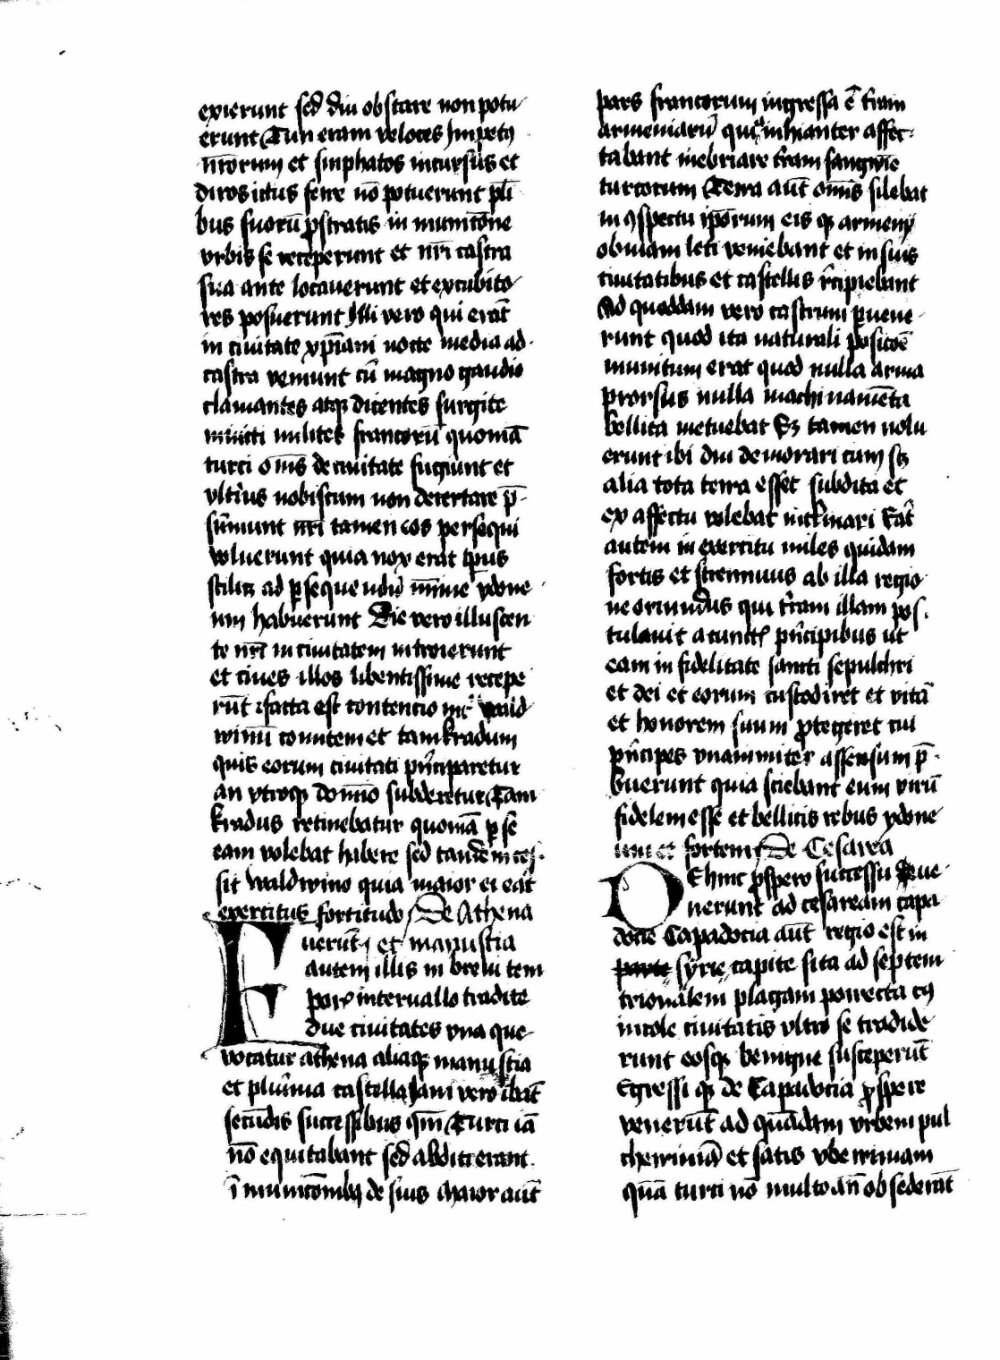 exierunt sed diu obstare non potu
erunt Tun eram veloces Impetꝰ
nr̄orum et simphatos incursus et
diros ictus ferre nō potuerunt pl̄i
bus suorū ꝓstratis in municōne
vrbis se receperunt et nr̄i castra
sua ante locauerunt et excubito
res posuerunt Illi vero qui erāt
in ciuitate xp̄iani nocte media ad
castra veniunt cū magno gaudio
clamantes atqꝫ dicentes surgite
inuicti milites francorū quoniā
turci om̄s de ciuitate fugiunt et
vlteriꝰ nobiscum non decertare p̄
sūmunt nr̄i tamen eos persequi
voluerunt quia nox erat tp̄us
scilicꝫ ad ꝑsequendū mīnime ydone
um habuerunt Die vero illuscen
te nr̄i in ciuitatem introierunt
et ciues illos libentissime recepe
rūt ffacta est contencio int̉ wald
winū comitem et tamkradum
quis eorum ciuitati pn̄ciparetur
an vtroqꝫ domīo subderetur Tam
kradus retinebatur quoniā ꝑ se
eam volebat habere sed tandem ces
sit waldwino quia maior ei erat
exercitus fortitudo De Athena
Fuerūt et manustia
autem illis in breui tem
poris interuallo tradite
due ciuitates vna que
vocatur athena aliaqꝫ manustia
et plurima castella Iam vero ibāt
secūdis successibus qm̄ Turci iā
nō equitabant sed abditi erant
ī municōibꝫ de suis maior aūt
pars francorum ingressa ē tr̄am
armeniarū quia inhianter affec
tabant inebriare tr̄am sanguīe
turcorum Terra aūt om̄is silebat
in ꝯspectu ip̄orum eis qꝫ armenij
obuiam leti veniebant et in suis
ciuitatibus et castellis recipiebant
Ad quoddam vero castrum ꝑuene
runt quod ita naturali posicōe
munitum erat quod nulla arma
prorsus nulla machinamēta
bellica metuebat Sꝫ tamen nolu
erunt ibi diu demorari cum sꝫ
alia tota terra esset subdita et
ex affectu volebat inclinari Erat
autem in exercitu miles quidam
fortis et strennuus ab illa regio
ne oriundus qui tr̄am illam pos
tulauit a cunctꝭ pn̄cipibus ut
eam in fidelitate sancti sepulchri
et dei et eorum custodiret et vitā
et honorem suum ꝓtegeret cui
pn̄cipes vnanimiter assensum p̄
buerunt quia sciebant eum virū
fidelem esse et bellicis rebus ydone
um et fortem De Cesarea
DEhinc ꝓspero successu ꝑue
nerunt ad cesaream capa
docie Capadocia aūt regio est in
parte syrie capite sita ad septem
trionalem plagam porrecta cꝰ
incole ciuitatis vltro se tradide
runt eosqꝫ benigne susceperūt
Egressi qꝫ de Capadocia ꝓspere
venerūt ad quādam vrbem pul
cherrimā et satis vberrimam
quā turci nō multo an̄ obsederāt